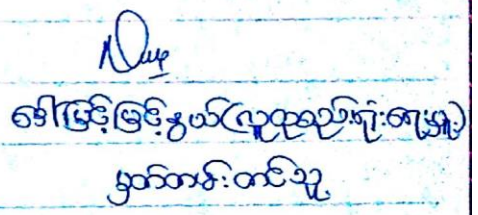 ဒေါ်မြင့်မြင့်နွယ်(လူထုစည်းရုံးရေးမှူး)
မှတ်တမ်းတင်သူ